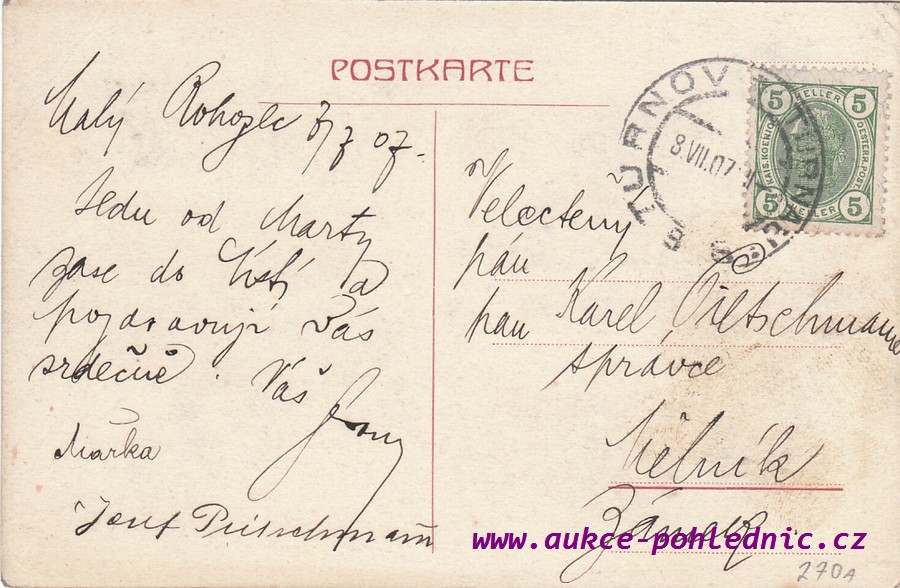 POSTKARTE
Malý Rohozec 8/7 07.
Jedu od Marty
zase do Ústí a
pozdravuji Vás
srdečně. Váš
Mařka
Josef Pietschmann
TURNOV TURNAU
8.VII.07
5 HELLER 5
KAIS.KOENIGL. OESTERR.POST
5 HELLER 5
Velectěný
pán
pan Karel Pietschmann
správce
Mělník
Zámek
www.aukce-pohlednic.cz
270A